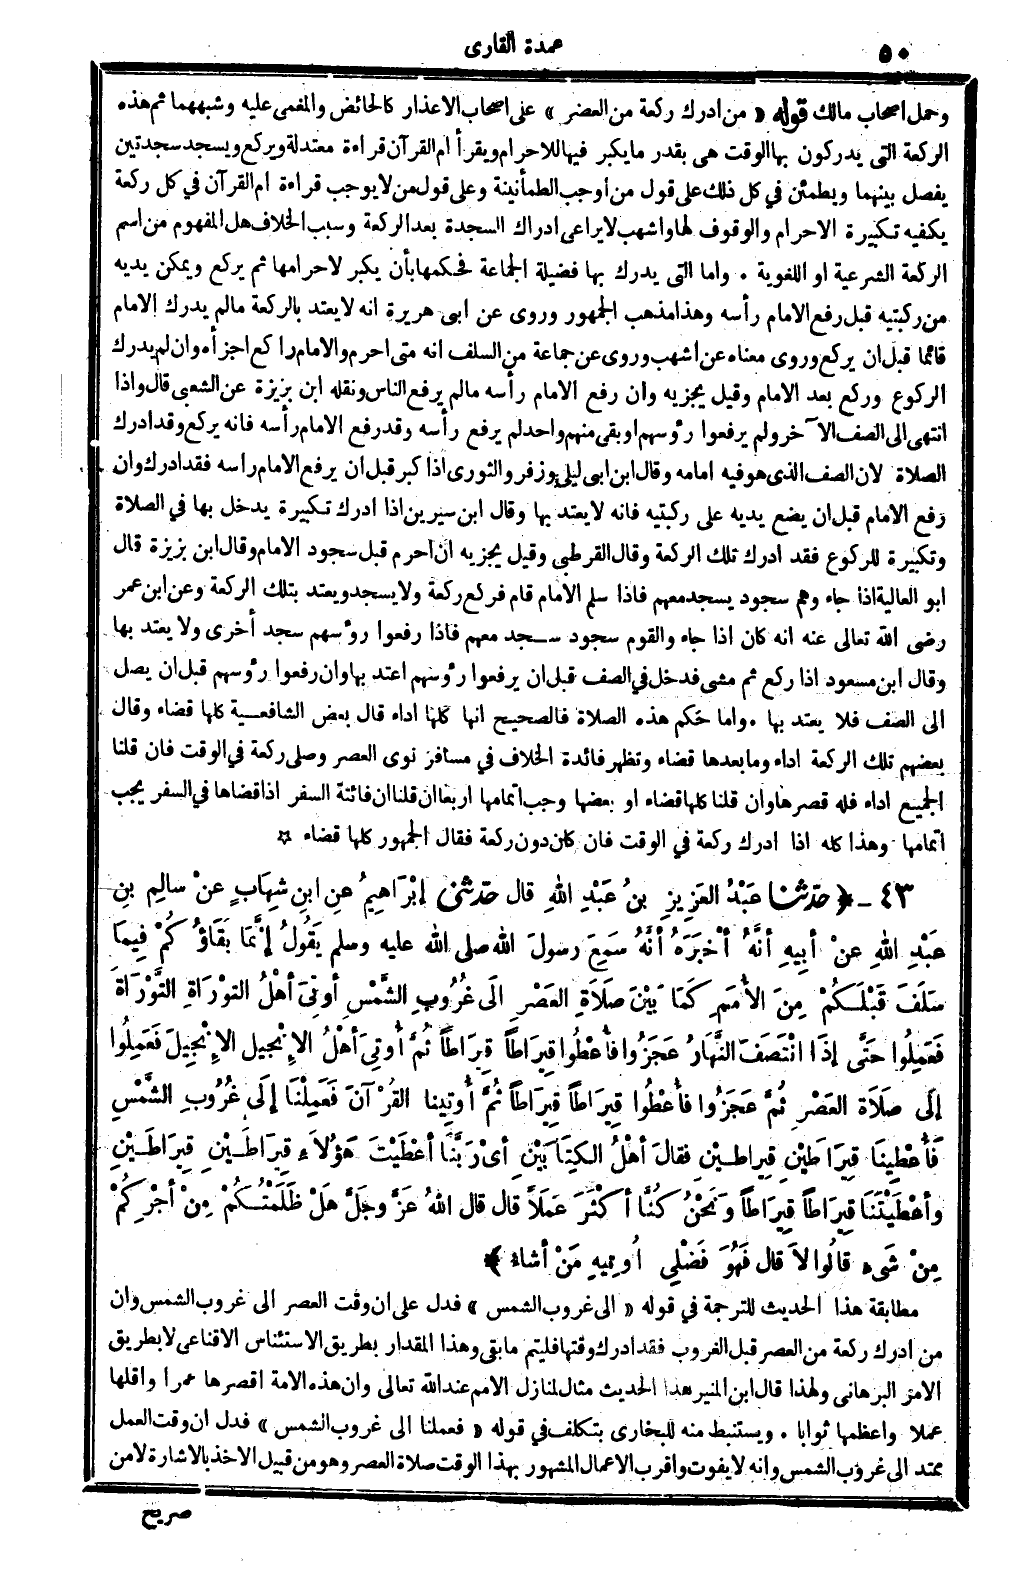 ٥٠
عمدة القارى
وحمل اصحاب مالك قوله « من ادرك ركعة من العصر » على اصحاب الاعذار كالحائض والمغمى عليه وشبههما ثم هذه
الركعة التى يدركون بها الوقت هى بقدر ما يكبر فيها للاحرام ويقرأ ام القرآن قراءة معتدلة ويركع ويسجد سجدتين
يفصل بينهما ويطمئن في كل ذلك على قول من اوجب الطمأنينة وعلى قول من لا يوجب قراءة ام القرآن في كل ركعة
يكفيه تكبيرة الاحرام والوقوف لها واشهب لا يراعى ادراك السجدة بعد الركعة وسبب الخلاف هل المفهوم من اسم
الركعة الشرعية او اللغوية . واما التى يدرك بها فضيلة الجماعة فحكمها بأن يكبر لاحرامها ثم يركع ويمكن يديه
من ركبتيه قبل رفع الامام رأسه وهذا مذهب الجمهور وروى عن ابى هريرة انه لا يعتد بالركعة مالم يدرك الامام
قائما قبل ان يركع وروى معناه عن اشهب وروى عن جماعة من السلف انه متى احرم والامام راكع اجزأه وان لم يدرك
الركوع وركع بعد الامام وقيل يجزيه وان رفع الامام رأسه مالم يرفع الناس ونقله ابن بزيزة عن الشعبى قال واذا
انتهى الى الصف الآخر ولم يرفعوا رؤسهم او بقى منهم واحد لم يرفع رأسه وقد رفع الامام رأسه فانه يركع وقد ادرك
الصلاة لان الصف الذى هو فيه امامه وقال ابن ابى ليلى وزفر والثورى اذا كبر قبل ان يرفع الامام راسه فقد ادرك وان
رفع الامام قبل ان يضع يديه على ركبتيه فانه لا يعتد بها وقال ابن سيرين اذا ادرك تكبيرة يدخل بها في الصلاة
وتكبيرة للركوع فقد ادرك تلك الركعة وقال القرطبى وقيل يجزيه ان احرم قبل سجود الامام وقال ابن بزيزة قال
ابو العالية اذا جاء وهم سجود يسجد معهم فاذا سلم الامام قام فركع ركعة ولا يسجد ويعتد بتلك الركعة وعن ابن عمر
رضى الله تعالى عنه انه كان اذا جاء والقوم سجود سجد معهم فاذا رفعوا رؤسهم سجد أخرى ولا يعتد بها
وقال ابن مسعود اذا ركع ثم مشى فدخل في الصف قبل ان يرفعوا رؤسهم اعتد بها وان رفعوا رؤسهم قبل ان يصل
الى الصف فلا يعتد بها . واما حكم هذه الصلاة فالصحيح انها كلها اداء قال بعض الشافعية كلها قضاء وقال
بعضهم تلك الركعة اداء وما بعدها قضاء وتظهر فائدة الخلاف في مسافر نوى العصر وصلى ركعة في الوقت فان قلنا
الجميع اداء فله قصرها وان قلنا كلها قضاء او بعضها وجب اتمامها اربعا ان قلنا ان فائتة السفر اذا قضاها في السفر يجب
اتمامها وهذا كله اذا ادرك ركعة في الوقت فان كان دون ركعة فقال الجمهور كلها قضاء ☆
٤٣ - ﴿ حدثنا عَبْدُ العَزِيزِ بنُ عَبْدِ اللهِ قال حدثنى إبْرَاهِيمُ عنِ ابنِ شِهَابٍ عنْ سالِمِ بنِ
عَبْدِ اللهِ عنْ أبِيهِ أنَّهُ أخْبَرَهُ أنَّهُ سَمِعَ رسولَ الله صلى الله عليه وسلم يَقُولُ إنَّمَا بَقَاؤُكُمْ فِيمَا
سَلَفَ قَبْلَكُمْ مِنَ الأُمَمِ كَمَا بَيْنَ صَلَاةِ العَصْرِ الَى غُرُوبِ الشَّمْسِ أوتِىَ أهْلُ التوْرَاةِ التَّوْرَاةَ
فَعَمِلُوا حَتَّى إذَا انْتَصَفَ النَّهَارُ عَجَزُوا فأُعْطُوا قِيرَاطاً قِيرَاطاً ثُمَّ أُوتِىَ أهْلُ الإنْجِيلِ الإنْجِيلَ فَعَمِلُوا
إلَى صَلَاةِ العَصْرِ ثُمَّ عَجَزُوا فأُعْطُوا قِيرَاطاً قِيرَاطاً ثُمَّ أُوتِينا القُرْآنَ فَعَمِلْنَا إلَى غُرُوبِ الشَّمْسِ
فَأُعْطِينَا قِيرَاطَيْنِ قِيراطَيْنِ فقالَ أهْلُ الكِتَابَيْنِ أىْ رَبَّنَا أعْطَيْتَ هَؤُلاَءِ قِيرَاطَيْنِ قِيرَاطَيْنِ
وأعْطَيْتَنَا قِيرَاطاً قِيرَاطاً وَنَحْنُ كُنَّا أكْثَرَ عَمَلاً قال قال اللهُ عَزَّ وجَلَّ هَلْ ظَلَمْتُكُمْ مِنْ أجْرِكُمْ
مِنْ شَىء قالُوا لاَ قال فَهُوَ فَضْلِي أُوتِيهِ مَنْ أشاء ﴾
مطابقة هذا الحديث للترجمة في قوله « الى غروب الشمس » فدل على ان وقت العصر الى غروب الشمس وان
من ادرك ركعة من العصر قبل الغروب فقد ادرك وقتها فليتم ما بقى وهذا المقدار بطريق الاستئناس الاقناعى لا بطريق
الامر البرهانى ولهذا قال ابن المنير هذا الحديث مثال لمنازل الامم عند الله تعالى وان هذه الامة اقصرها عمرا واقلها
عملا واعظمها ثوابا . ويستنبط منه للبخارى بتكلف في قوله « فعملنا الى غروب الشمس » فدل ان وقت العمل
ممتد الى غروب الشمس وانه لا يفوت واقرب الاعمال المشهور بهذا الوقت صلاة العصر وهو من قبيل الاخذ بالاشارة لا من
صريح